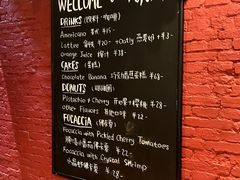 WELCOME
DRINKS (饮料·咖啡)
Americano 美式 ¥15
Lattee 拿铁 ¥20 +Oatly 燕麦奶 +¥3
Orange Juice 橙汁 ¥38
CAKES (蛋糕)
Chocolate Banana 巧克力香蕉蛋糕 ¥68
DONUTS
Pistachio n Cherry 开心果樱桃 ¥28
other Flavors ¥22
FOCACCIA
Focaccia with Pickled Cherry Tomatoes
¥22
Focaccia with Crystal Shrimp
¥28